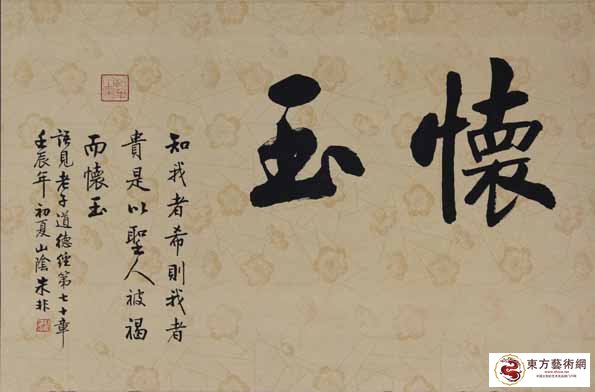 懷玉
知我者希則我者
貴是以聖人被褐
而懷玉
語見老子道德經第七十章
壬辰年初夏山陰朱非
東方藝術網